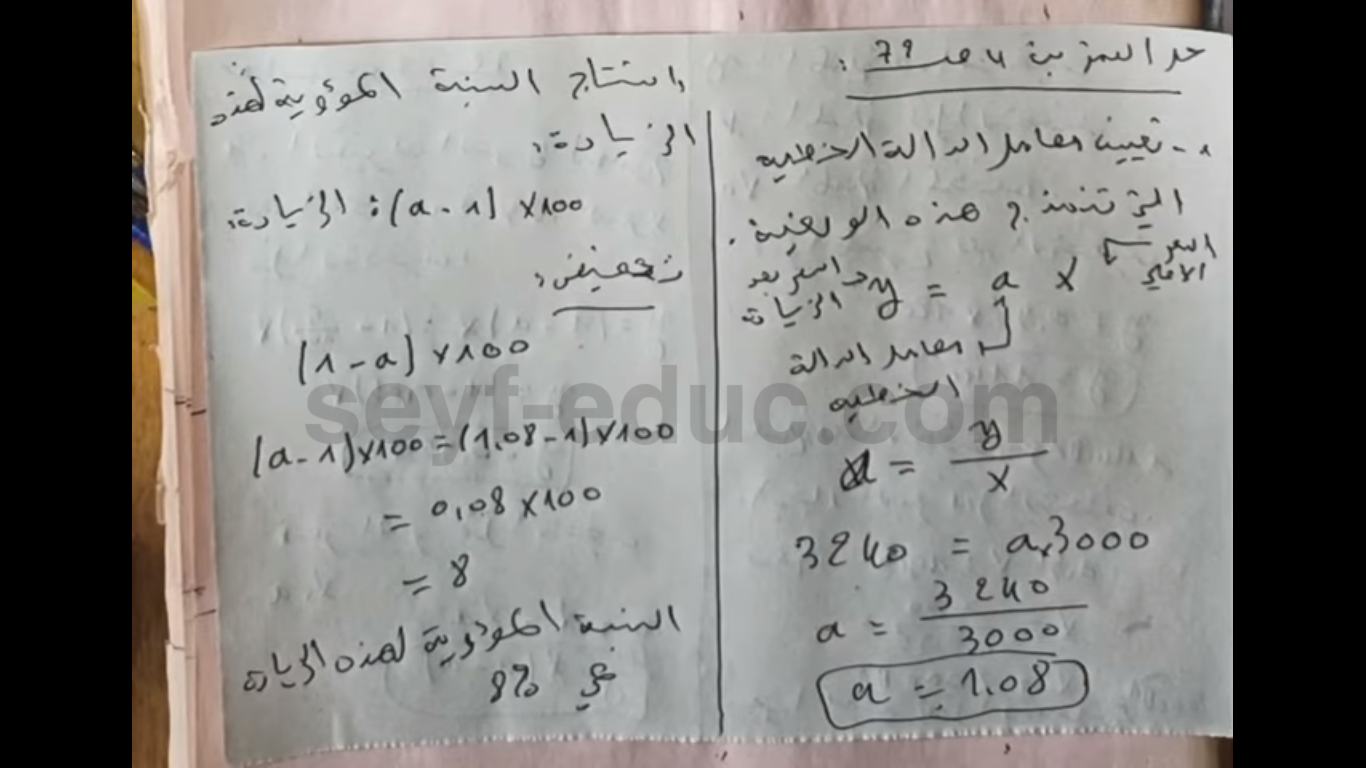 حل التمرين 4 ص 79 :
1 - تعيين معامل الدالة الخطية
التي تنمذج هذه الوضعية .
السعر
الأصلي
السعر بعد
الزيادة
y = a x
معامل الدالة
الخطية
a = y / x
3240 = a x 3000
a = 3240 / 3000
a = 1.08
استنتاج النسبة المئوية لهذه
الزيادة :
الزيادة : (a - 1) x 100
تخفيض :
(1 - a) x 100
(a - 1) x 100 = (1.08 - 1) x 100
= 0.08 x 100
= 8
النسبة المئوية لهذه الزيادة
هي 8%
seyf-educ.com